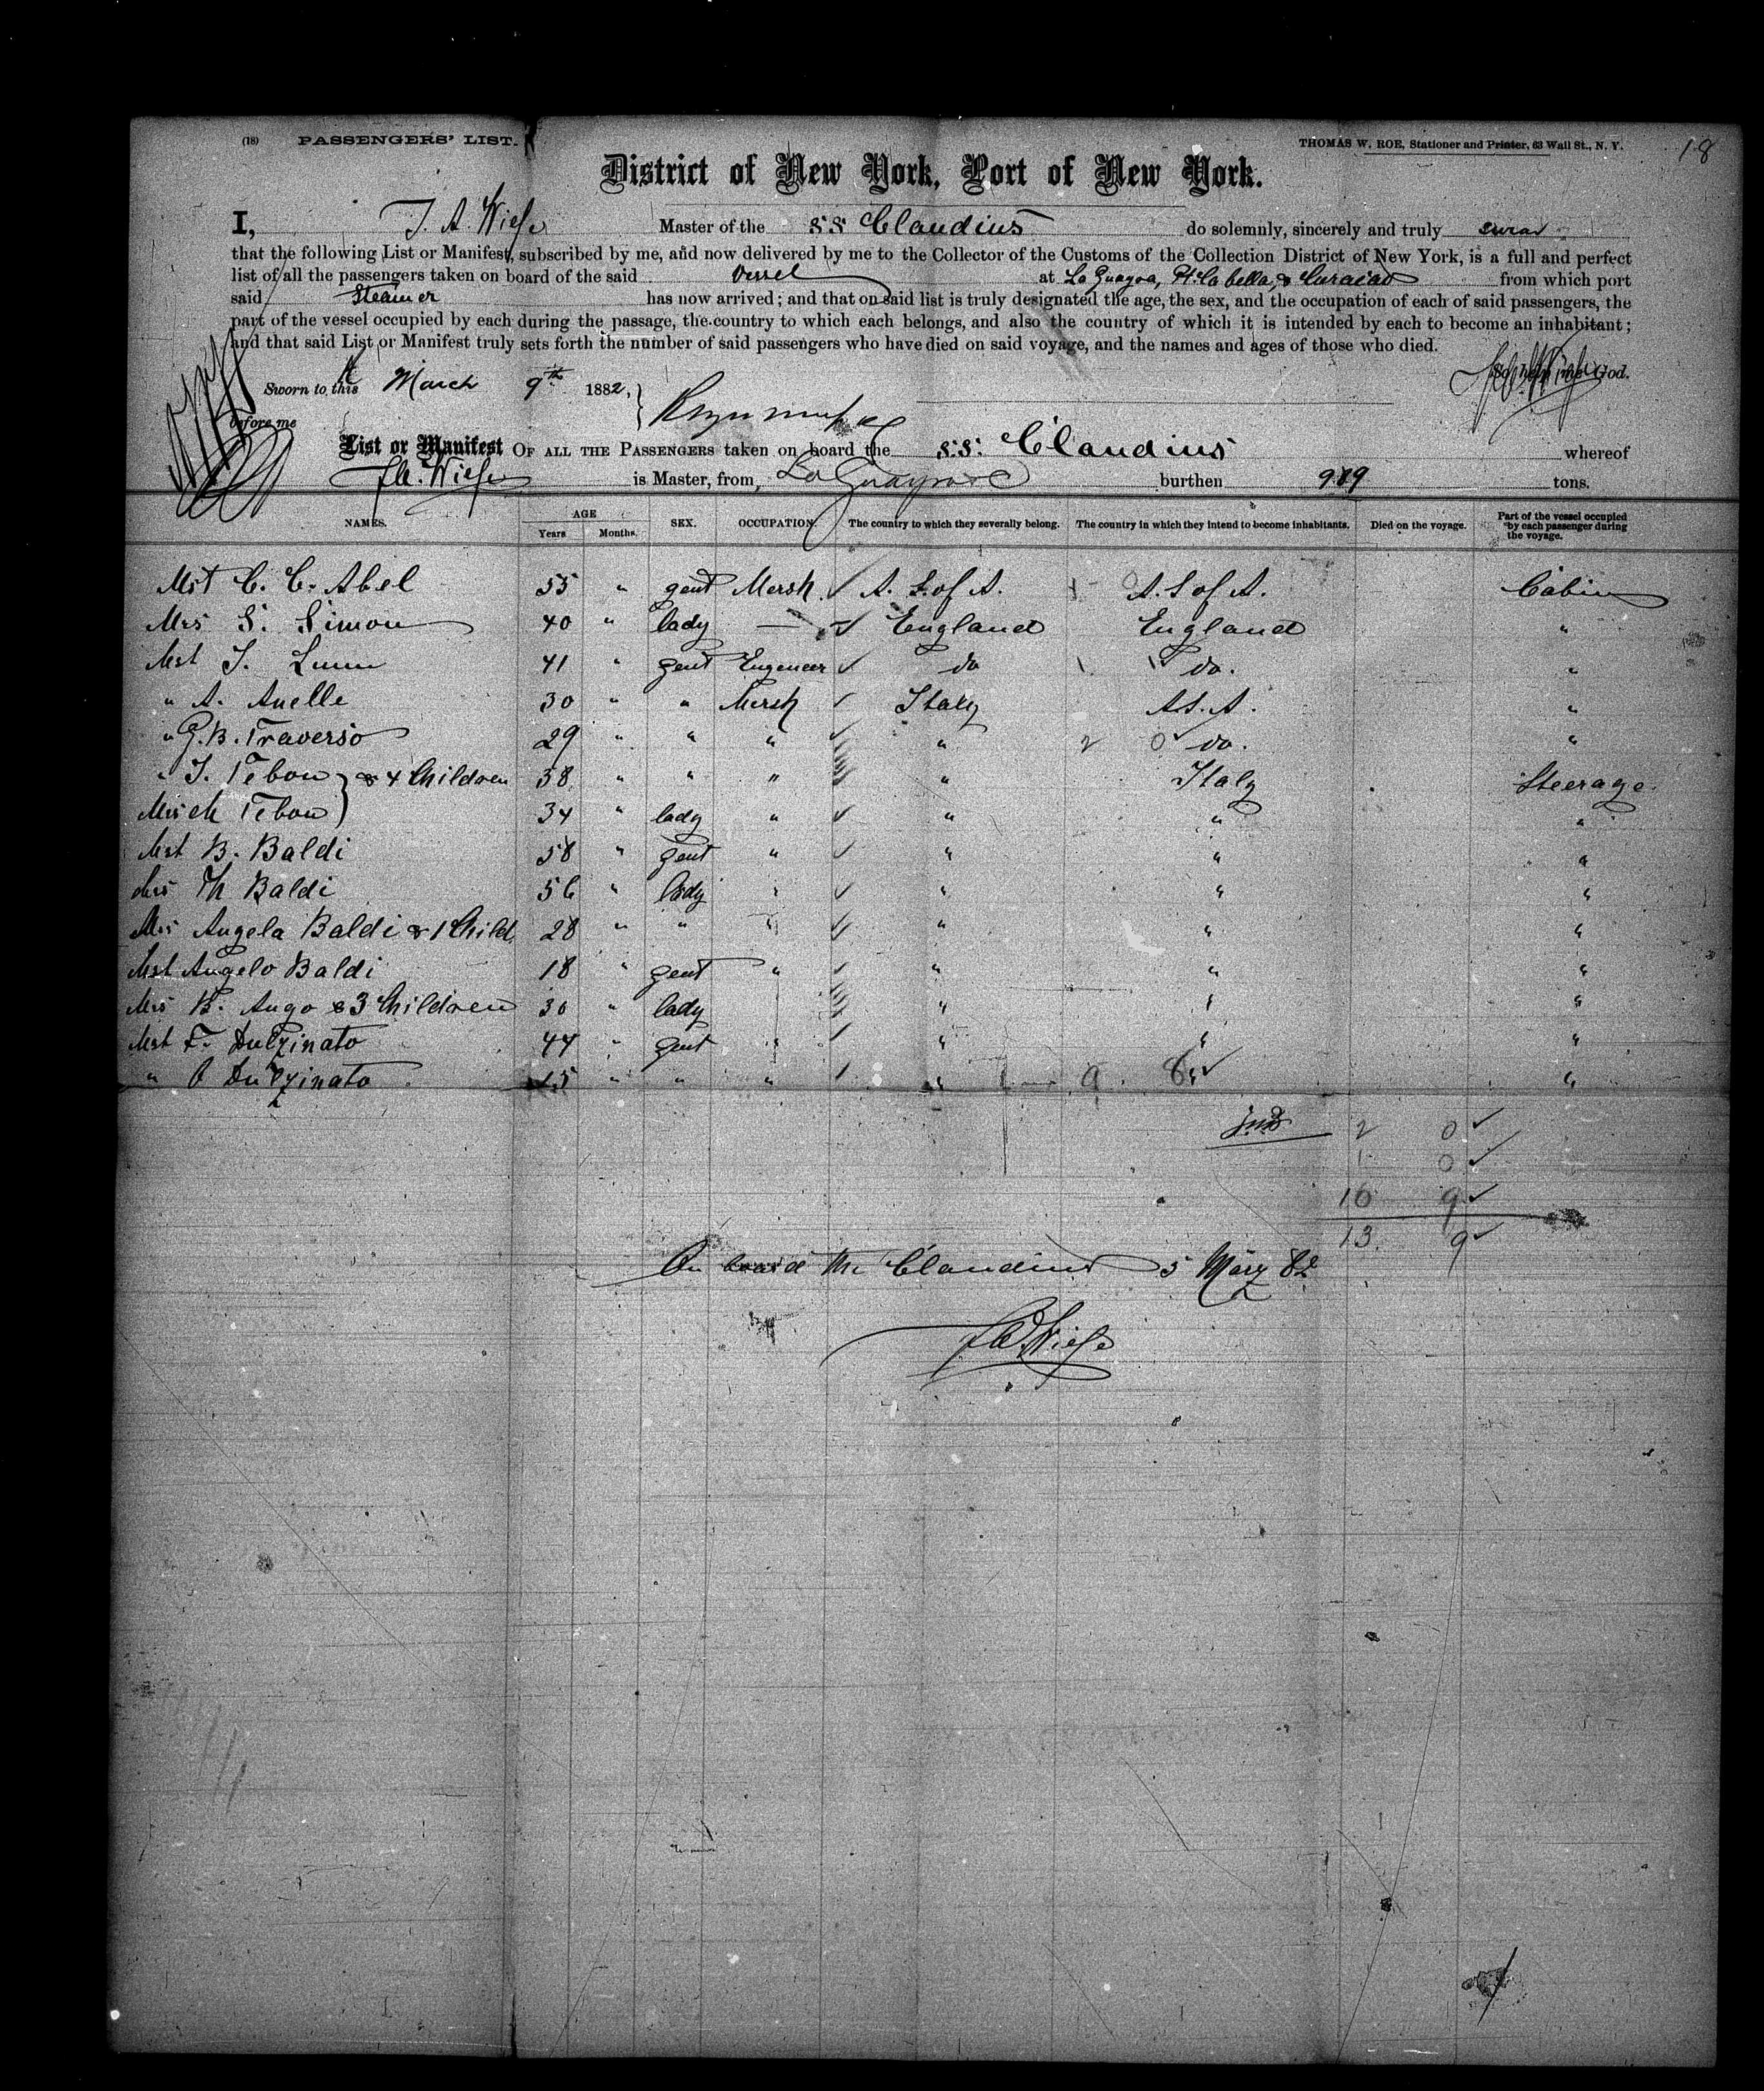 (18) PASSENGERS' LIST. THOMAS W. ROE, Stationer and Printer, 63 Wall St., N. Y. 18
District of New York, Port of New York.
I, J. A. Wiese Master of the SS Claudius do solemnly, sincerely and truly swear
that the following List or Manifest, subscribed by me, and now delivered by me to the Collector of the Customs of the Collection District of New York, is a full and perfect
list of all the passengers taken on board of the said Vessel at La Guayra, Pt. Cabella, & Curacao from which port
said Steamer has now arrived; and that on said list is truly designated the age, the sex, and the occupation of each of said passengers, the
part of the vessel occupied by each during the passage, the country to which each belongs, and also the country of which it is intended by each to become an inhabitant;
and that said List or Manifest truly sets forth the number of said passengers who have died on said voyage, and the names and ages of those who died.
So help me God.
Sworn to this March 9th 1882,
before me
List or Manifest OF ALL THE PASSENGERS taken on board the S.S. Claudius whereof
J. A. Wiese is Master, from La Guayra burthen 919 tons.
NAMES. AGE Years Months. SEX. OCCUPATION. The country to which they severally belong. The country in which they intend to become inhabitants. Died on the voyage. Part of the vessel occupied by each passenger during the voyage.
Mst C. C. Abel 55 " gent Mersh. A. S. of A. A. S of A. Cabin
Mrs S. Simon 40 " lady — England England "
Mst J. Lunn 41 " gent Engeneer do do. "
" A. Anelle 30 " " Mersh Italy A.S.A. "
" G. B. Traverso 29 " " " " 2 0 do. "
" J. Tebon & 4 Children 38 " " " " Italy Steerage
Mrs M Tebon 34 " lady " " " "
Mst B. Baldi 58 " gent " " " "
Mrs Th Baldi 56 " lady " " " "
Mrs Angela Baldi & 1 Child. 28 " " " " " "
Mst Angelo Baldi 18 " gent " " " "
Mrs B. Augo & 3 Children 30 " lady " " "
Mst F. Dulzinato 44 " gent " " " "
" O Dulzinato 15 " " " " 1 9 8 " "
2 0
1 0
10 9
13 9
On board the Claudius 5 März 82
J A. Wiese